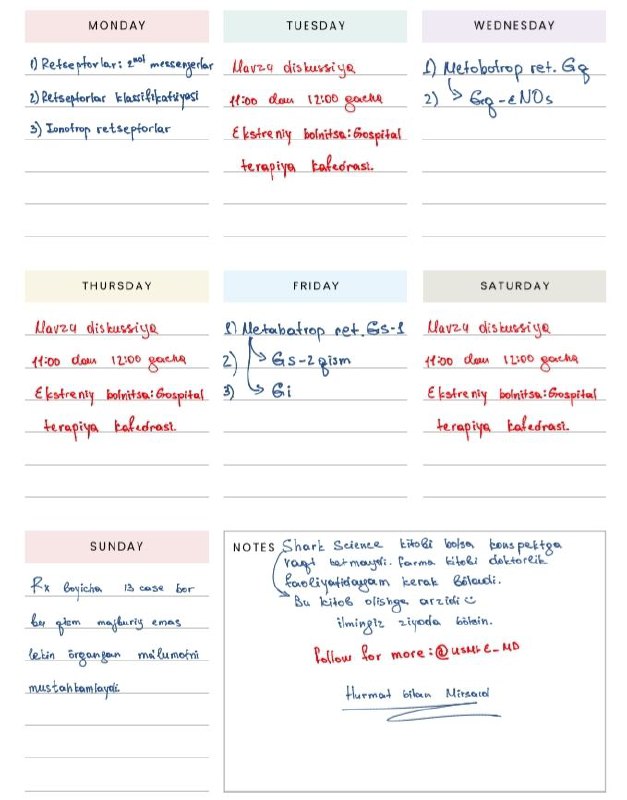 MONDAY
1) Retseptorlar: 2nd messenjerlar
2) Retseptorlar klassifikatsiyasi
3) Ionotrop retseptorlar
TUESDAY
Mavzu diskussiya
11:00 dan 12:00 gacha
Ekstreniy bolnitsa: Gospital
terapiya kafedrasi.
WEDNESDAY
1) Metobotrop ret. Gq
2) Gq - eNOs
THURSDAY
Mavzu diskussiya
11:00 dan 12:00 gacha
Ekstreniy bolnitsa: Gospital
terapiya kafedrasi.
FRIDAY
1) Metabatrop ret. Gs-1
2) Gs-2 qism
3) Gi
SATURDAY
Mavzu diskussiya
11:00 dan 12:00 gacha
Ekstreniy bolnitsa: Gospital
terapiya kafedrasi.
SUNDAY
Rx boyicha 13 case bor
bu qism majburiy emas
lekin örgangan ma'lumotni
mustahkamlaydi
NOTES Shark Science kitobi bolsa konspektga
vaqt ketmaydi. Farma kitobi doktorlik
faoliyatidayam kerak böladi.
Bu kitob olishga arzidi
ilmingiz ziyoda bölsin.
Follow for more: @USMLE_MD
Hurmat bilan Mirsaid